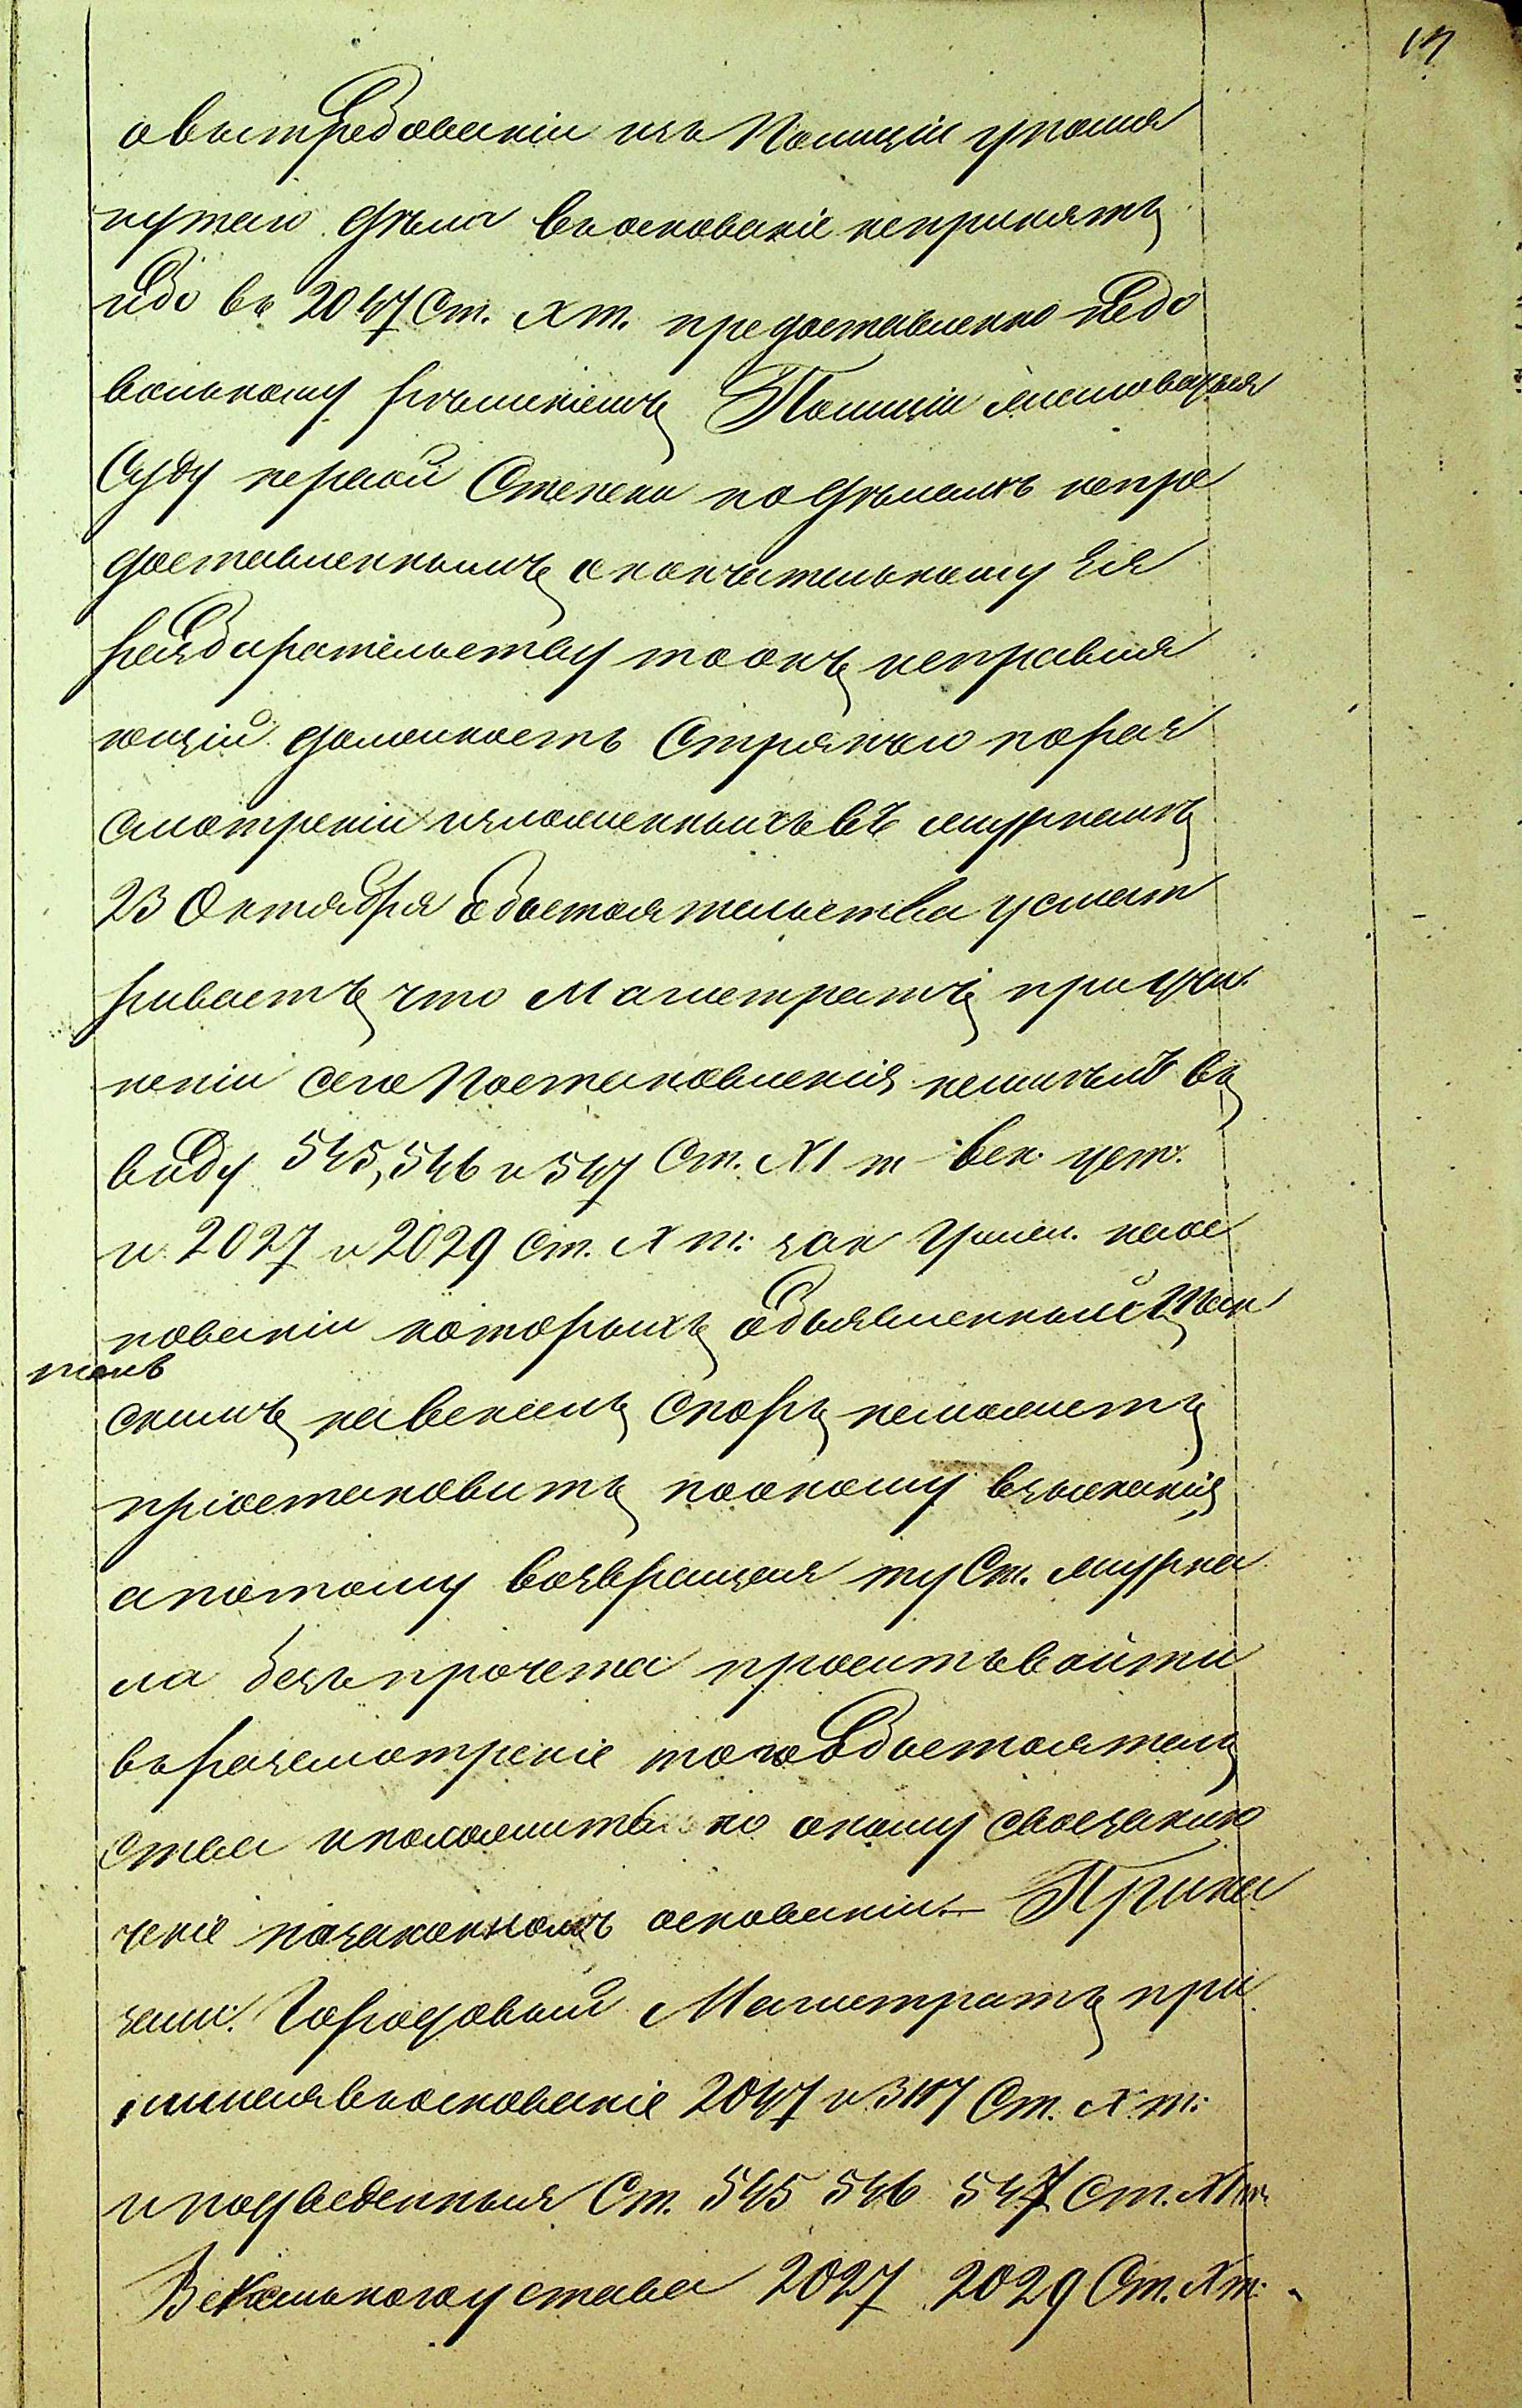 13
о вытребованіи изъ Полиціи упомя
нутаго дѣла въ основаніе непринять
ибо въ 2047 Ст. X т. предоставленно недо
вольному рѣшеніемъ Полиціи
Суду первой Степени по дѣламъ непре
доставленнымъ окончательному Ея
разбирательству то онъ исправля
ющій должность Стряпчаго пораз
смотреніи изложенныхъ въ журналѣ
23 Октября обстоятельства усмат
риваетъ что Магистратъ при учи
неніи сего Постановленія неимѣлъ въ
виду 545, 546 и 547 Ст. XI т век. уст.
и 2027 и 2029 Ст. X т: зак Граж. наос
нованіи которыхъ объявленный

скимъ навексель споръ неможетъ
пріостановить пооному взысканія
апотому возвращая ту Ст. журна
ла безъ прочета проситъ войти
въ разсмотреніе того обстоятель
ства иположить по оному своезаклю
ченіе назаконномъ основаніи. Прика
зали: Городовый Магистратъ при
нимая въ основаніе 2047 и 3117 Ст. X т:
и подведенныя Ст. 545 546 547 Ст. XI т.
Вексельнаго устава 2027 2029 Ст. X т: